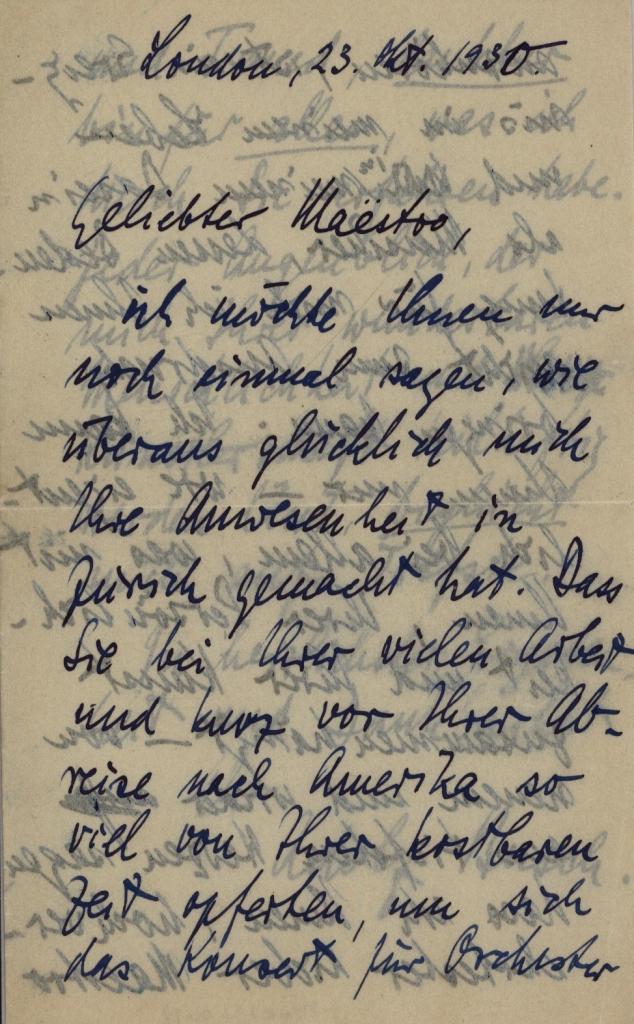 London, 23. Okt. 1930.
Geliebter Maëstro,
ich möchte Ihnen nur
noch einmal sagen, wie
überaus glücklich mich
Ihre Anwesenheit in
Zürich gemacht hat. Dass
Sie bei Ihrer vielen Arbeit
und kurz vor Ihrer Ab-
reise nach Amerika so
viel von Ihrer kostbaren
Zeit opferten, um sich
das Konzert für Orchester